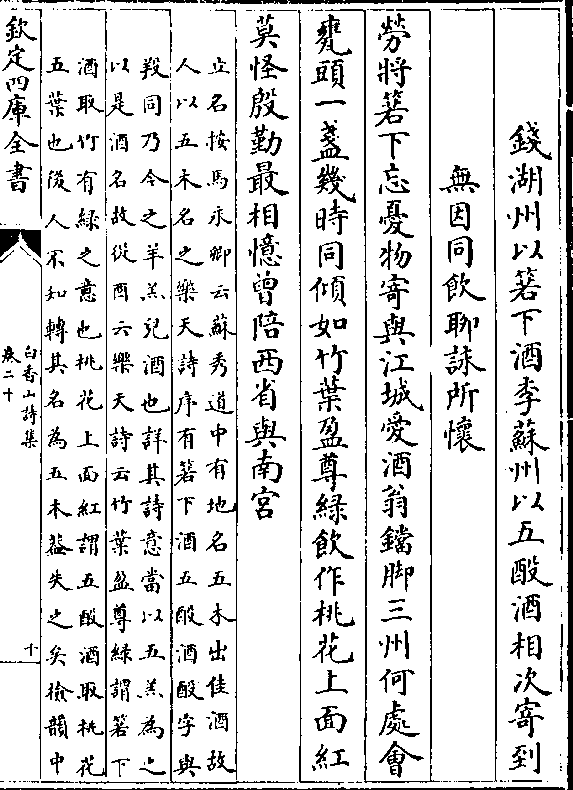 錢湖州以箬下酒李蘇州以五酘酒相次寄到
無因同飲聊詠所懷
勞將箬下忘憂物寄與江城愛酒翁鐺脚三州何處會
甕頭一盞幾時同傾如竹葉盈尊綠飲作桃花上面紅
莫怪殷勤最相憶曾陪西省與南宮
立名按馬永卿云蘇秀道中有地名五木出佳酒故
人以五木名之樂天詩序有箬下酒五酘酒酘字與
羖同乃今之羊羔兒酒也詳其詩意當以五羔為之
以是酒名故從酉云樂天詩云竹葉盈尊綠謂箬下
酒取竹有綠之意也桃花上面紅謂五酘酒取桃花
五葉也後人不知轉其名為五木葢失之矣檢韻中
欽定四庫全書
白香山詩集
卷二十
十